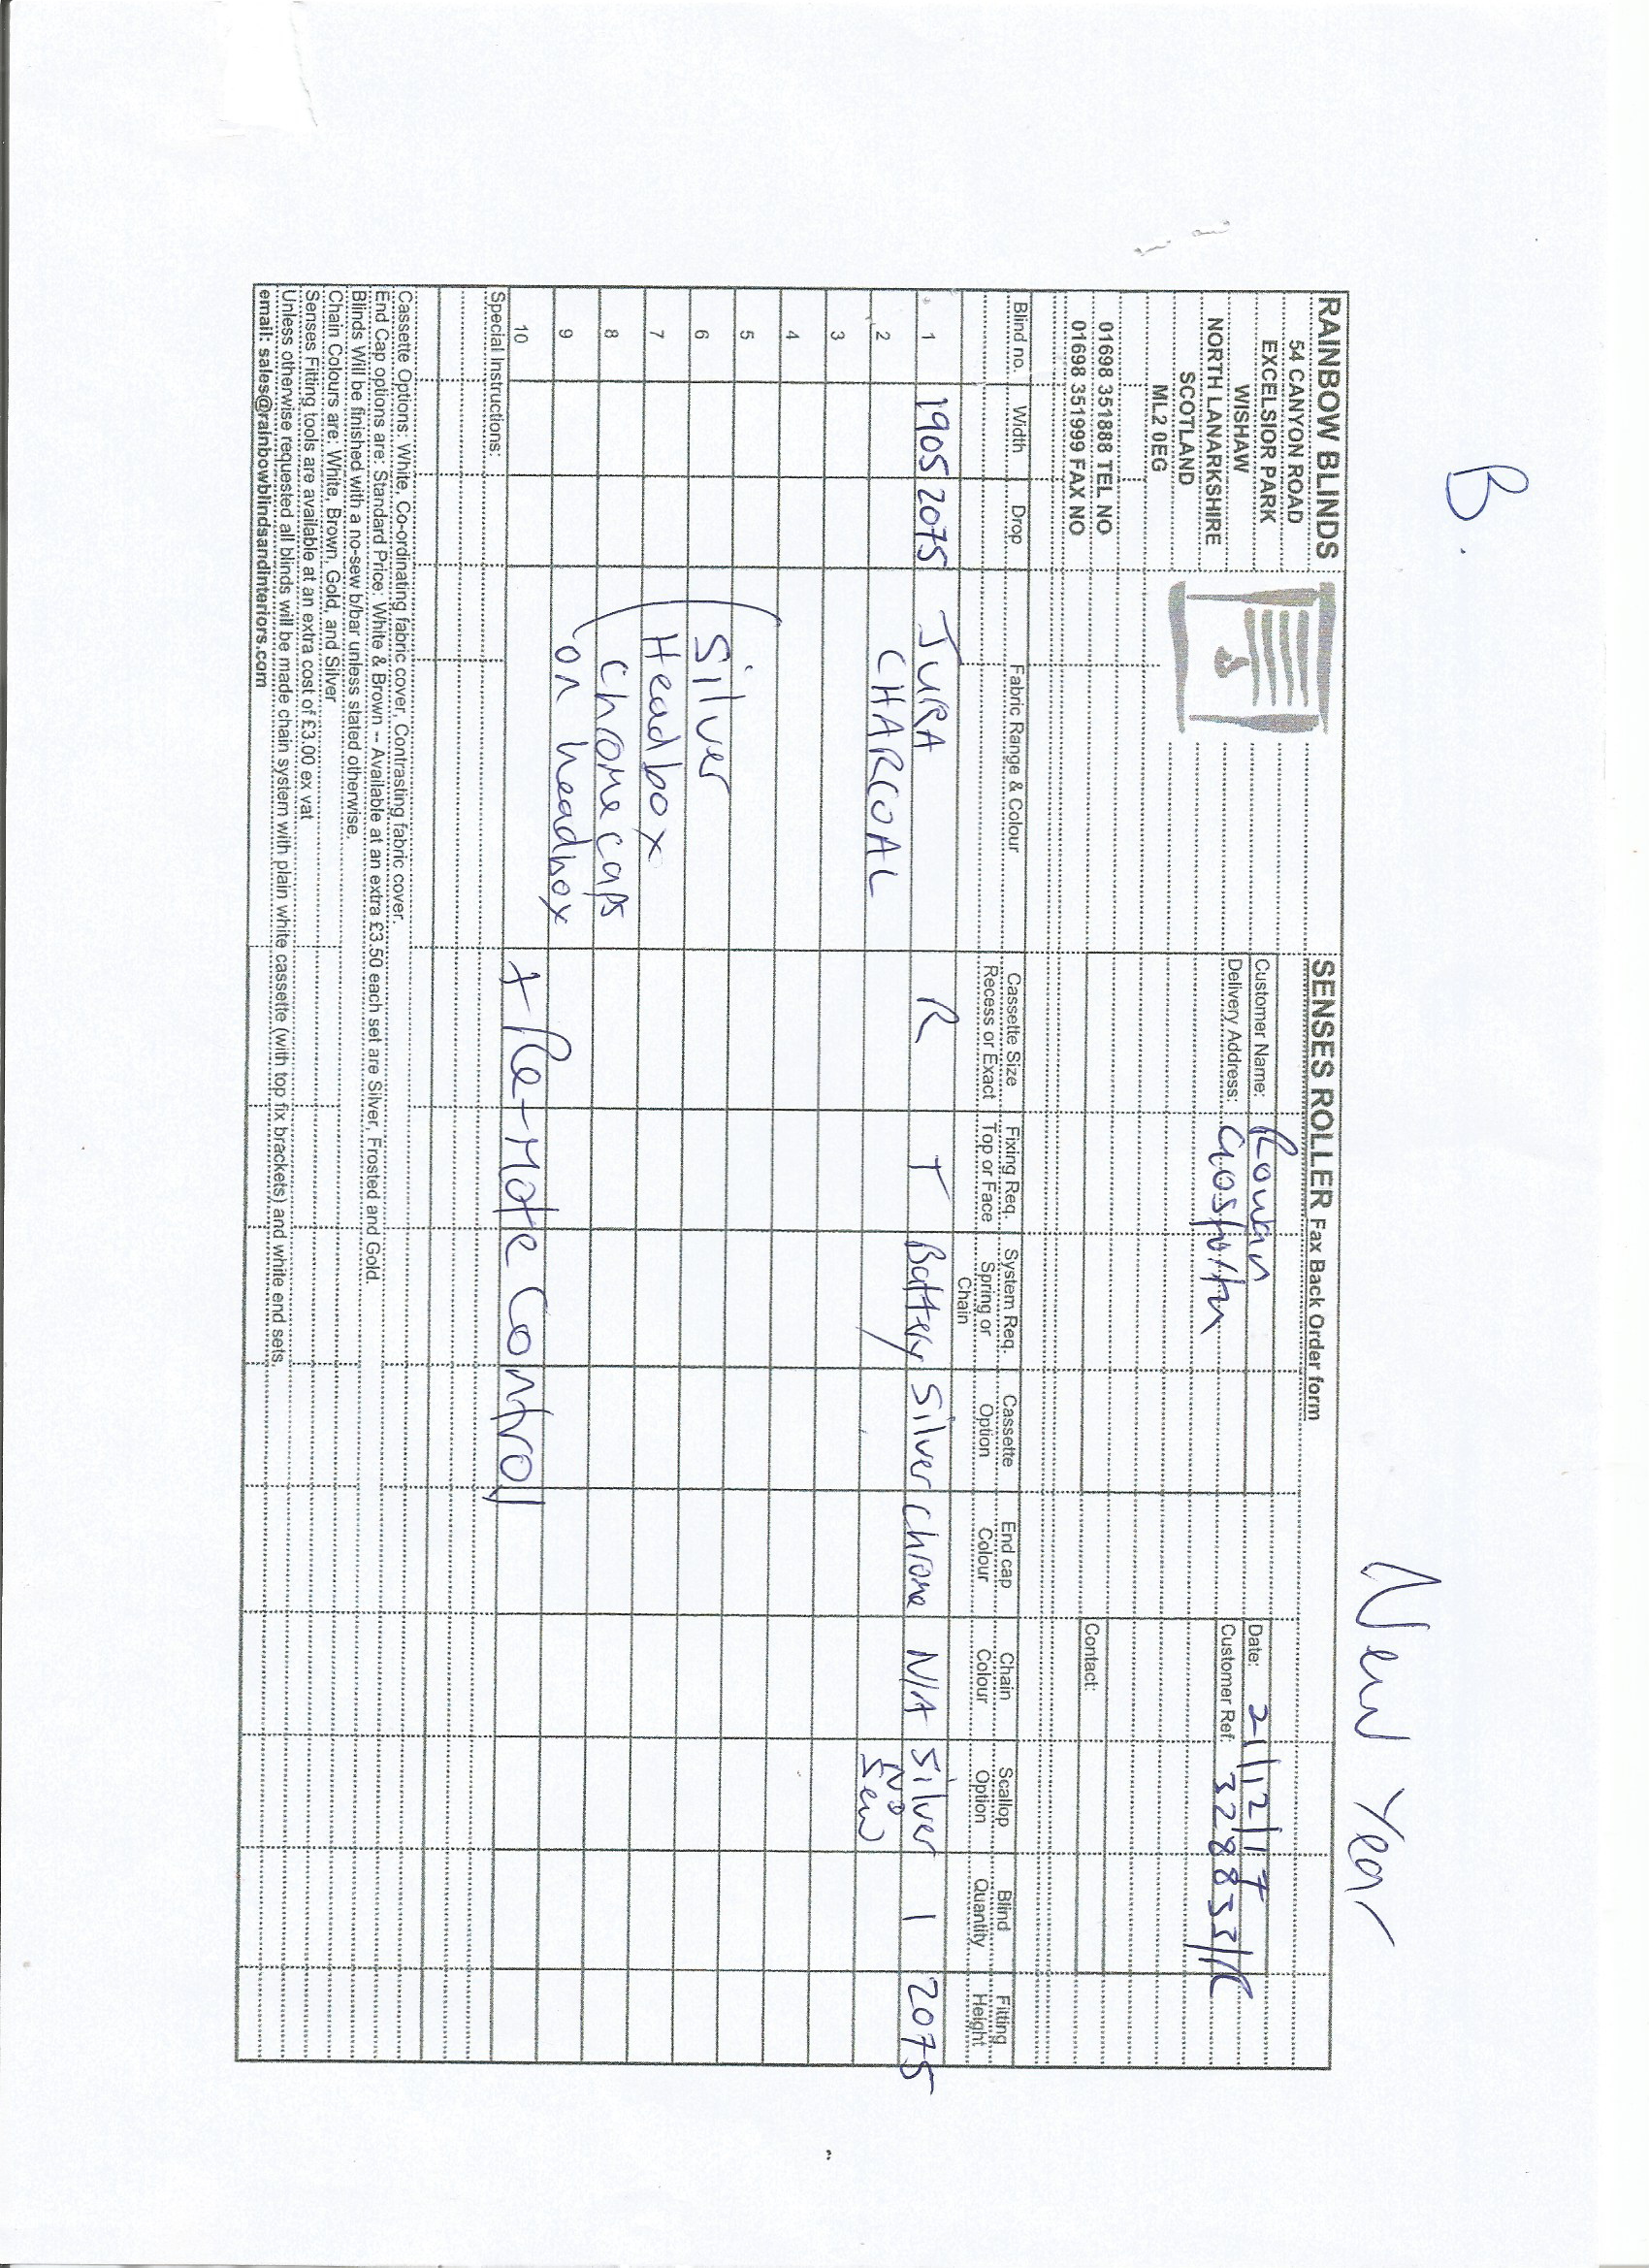 B.
New Year
RAINBOW BLINDS
54 CANYON ROAD
EXCELSIOR PARK
WISHAW
NORTH LANARKSHIRE
SCOTLAND
ML2 0EG
01698 351888 TEL NO
01698 351999 FAX NO
SENSES ROLLER Fax Back Order form
Customer Name: Rowan
Delivery Address: Gosforth
Date: 21/12/17
Customer Ref: 328833/R
Contact:
Blind no. Width Drop Fabric Range & Colour Cassette Size Recess or Exact Fixing Req. Top or Face System Req. Spring or Chain Cassette Option End cap Colour Chain Colour Scallop Option Blind Quantity Fitting Height
1 1905 2075 JURA R T Battery Silver Chrome N/A Silver 1 2075
2 CHARCOAL No Sew
3
4
5
6 Silver
7 Headbox
8 Chrome caps
9 on headbox
10 + Re-mote Control
Special Instructions:
Cassette Options: White, Co-ordinating fabric cover, Contrasting fabric cover.
End Cap options are: Standard Price: White & Brown -- Available at an extra £3.50 each set are Silver, Frosted and Gold.
Blinds Will be finished with a no-sew b/bar unless stated otherwise.
Chain Colours are: White, Brown, Gold, and Silver
Senses Fitting tools are available at an extra cost of £3.00 ex vat
Unless otherwise requested all blinds will be made chain system with plain white cassette (with top fix brackets) and white end sets.
email: sales@rainbowblindsandinteriors.com